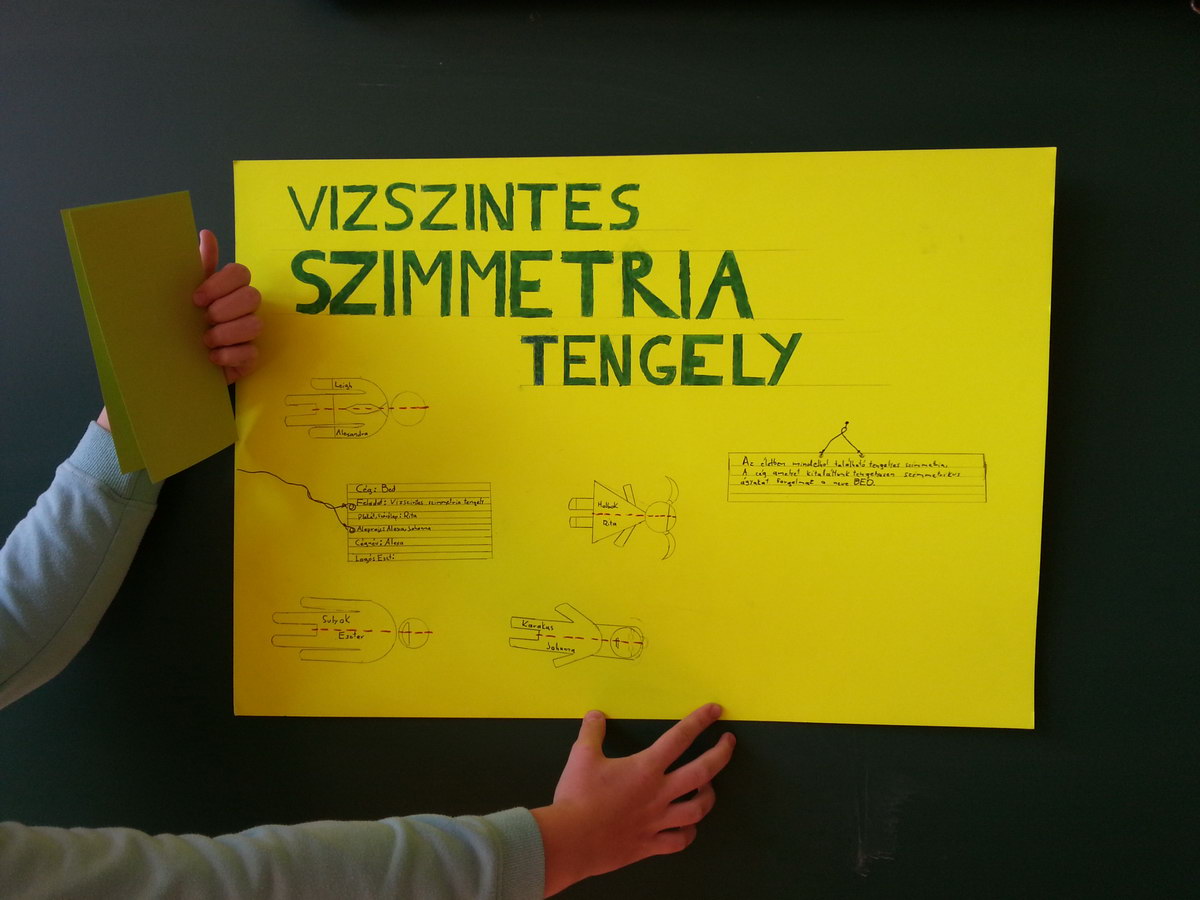 VIZSZINTES
SZIMMETRIA
TENGELY
Leigh
Alexandra
Az életben mindenhol található tengelyes szimmetria.
A cég amelyet kitaláltunk tengelyesen szimmetrikus
ágyakat forgalmaz a neve BED.
Cég: Bed
Feladat: Vizszintes szimmetria tengely
Plakát, : Rita
Alaprajz: Alexa, Johanna
Cégnév: Alexa
Logó: Eszti
Rita
Sulyok
Eszter
Karakas
Johanna